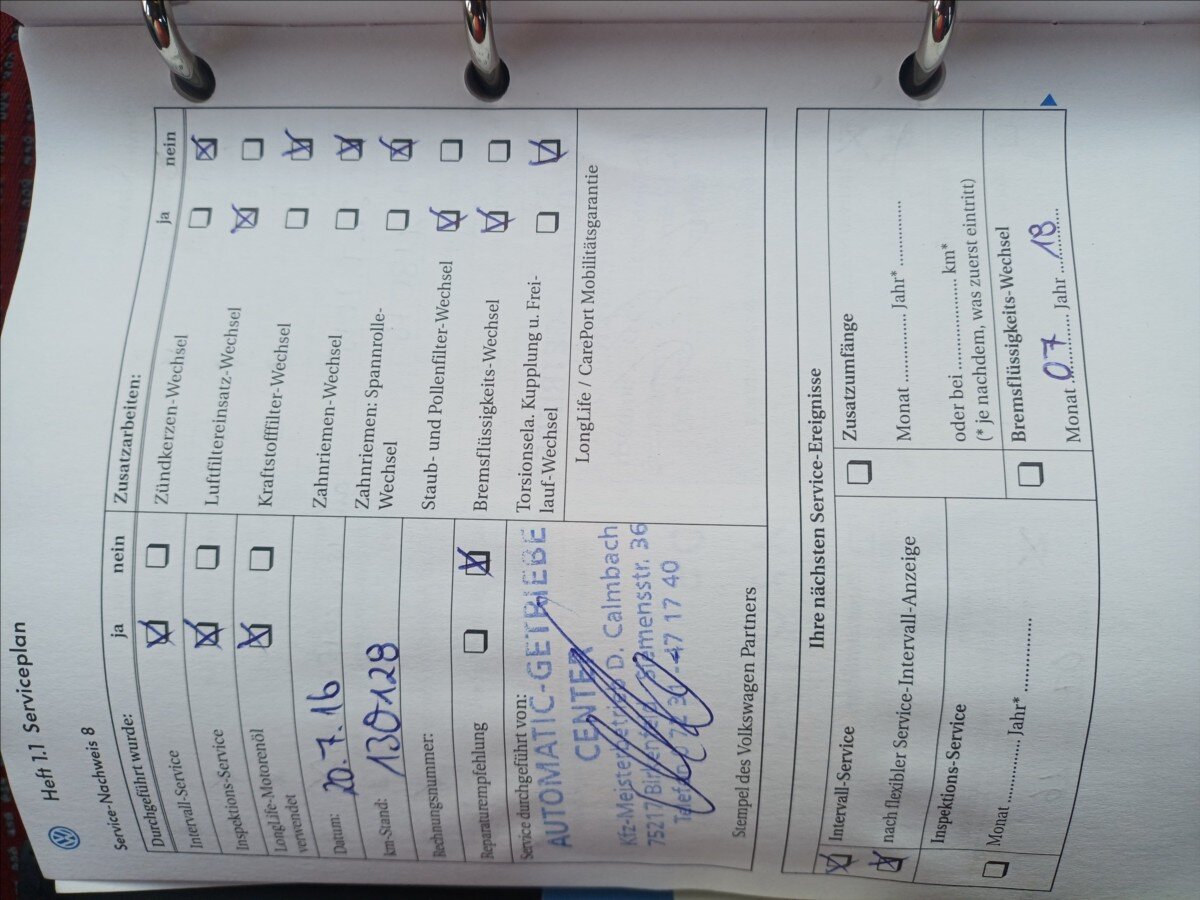 Heft 1.1 Serviceplan
Service-Nachweis 8
Durchgeführt wurde: ja nein
Intervall-Service
Inspektions-Service
LongLife-Motorenöl
verwendet
Datum: 20.7.16
km-Stand: 130128
Rechnungsnummer:
Reparaturempfehlung
Service durchgeführt von:
AUTOMATIC-GETRIEBE
CENTER
Kfz-Meisterbetrieb D. Calmbach
75217 Birkenfeld Siemensstr. 36
Stempel des Volkswagen Partners
Zusatzarbeiten: ja nein
Zündkerzen-Wechsel
Luftfiltereinsatz-Wechsel
Kraftstofffilter-Wechsel
Zahnriemen-Wechsel
Zahnriemen: Spannrolle-
Wechsel
Staub- und Pollenfilter-Wechsel
Bremsflüssigkeits-Wechsel
Torsionsela. Kupplung u. Frei-
lauf-Wechsel
LongLife / CarePort Mobilitätsgarantie
Ihre nächsten Service-Ereignisse
Intervall-Service
nach flexibler Service-Intervall-Anzeige
Inspektions-Service
Monat ............... Jahr* ...............
Zusatzumfänge
Monat ............... Jahr* ...............
oder bei ............... km*
(* je nachdem, was zuerst eintritt)
Bremsflüssigkeits-Wechsel
Monat 07 Jahr 18